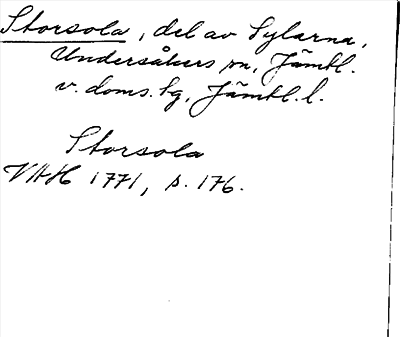 Storsola, del av Sylarna,
Undersåkers sn, Jämtl.
v. doms. tg, Jämtl. l.
Storsola
VAH 1771, s. 176.